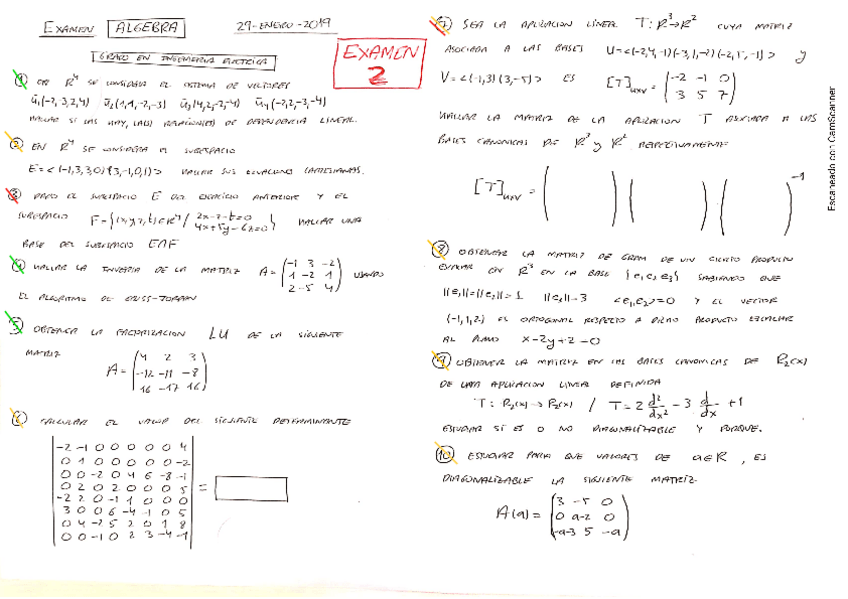 EXAMEN ALGEBRA 29-ENERO-2019
GRADO EN INGENIERIA ELECTRICA
EXAMEN
2
1 EN R⁴ SE CONSIDERA EL SISTEMA DE VECTORES
ū₁(-2,3,2,4) ū₂(1,1,-2,-3) ū₃(4,2,-2,-4) ū₄(-2,2,-3,-4)
HALLAR SI LAS HAY, LA(S) RELACION(ES) DE DEPENDENCIA LINEAL.
2 EN R⁴ SE CONSIDERA EL SUBESPACIO
E=<(-1,3,3,0)(3,-1,0,1)> HALLAR SUS ECUACIONES CARTESIANAS.
3 DADO EL SUBESPACIO E DEL EJERCICIO ANTERIOR Y EL
SUBESPACIO F={(x,y,z,t)∈R⁴/ 2x-z-t=0
4x+5y-6z=0} HALLAR UNA
BASE DEL SUBESPACIO E∩F
4 HALLAR LA INVERSA DE LA MATRIZ A= USANDO
-1 3 -2
1 -2 1
2 -5 4
EL ALGORITMO DE GAUSS-JORDAN
5 OBTENER LA FACTORIZACION LU DE LA SIGUIENTE
MATRIZ
A=
4 2 3
-12 -11 -8
16 -17 16
6 CALCULAR EL VALOR DEL SIGUIENTE DETERMINANTE
-2 -1 0 0 0 0 0 4
0 1 0 0 0 0 0 -2
0 0 -2 0 4 6 -8 -1
0 2 0 2 0 0 0 5
-2 2 0 -1 1 0 0 0
3 0 0 6 -4 -1 0 5
0 4 -2 5 2 0 1 8
0 0 -1 0 2 3 -4 -1
=
7 SEA LA APLICACION LINEAL T:R³→R² CUYA MATRIZ
ASOCIADA A LAS BASES U=<(-2,4,-1)(-3,1,-2)(-2,5,-1)> Y
V=<(-1,3)(3,-5)> ES [T]UxV =
-2 -1 0
3 5 7
HALLAR LA MATRIZ DE LA APLICACION T ASOCIADA A LAS
BASES CANONICAS DE R³ y R² RESPECTIVAMENTE
[T]UxV = ( ) ( ) ( )⁻¹
8 OBTENER LA MATRIZ DE GRAM DE UN CIERTO PRODUCTO
ESCALAR EN R³ EN LA BASE {e₁ e₂ e₃} SABIENDO QUE
||e₁||=||e₂||=1 ||e₃||=3 <e₁,e₂>=0 Y EL VECTOR
(-1,1,2) ES ORTOGONAL RESPECTO A DICHO PRODUCTO ESCALAR
AL PLANO x-2y+z=0
9 OBTENER LA MATRIZ EN LAS BASES CANONICAS DE P₂(x)
DE UNA APLICACION LINEAL DEFINIDA
T: P₂(x)→P₂(x) / T=2 d²/dx² -3 d/dx +1
ESTUDIAR SI ES O NO DIAGONALIZABLE Y PORQUE.
10 ESTUDIAR PARA QUE VALORES DE a∈R, ES
DIAGONALIZABLE LA SIGUIENTE MATRIZ
A(a)=
3 -5 0
0 a-2 0
-a-3 5 -a
Escaneado con CamScanner